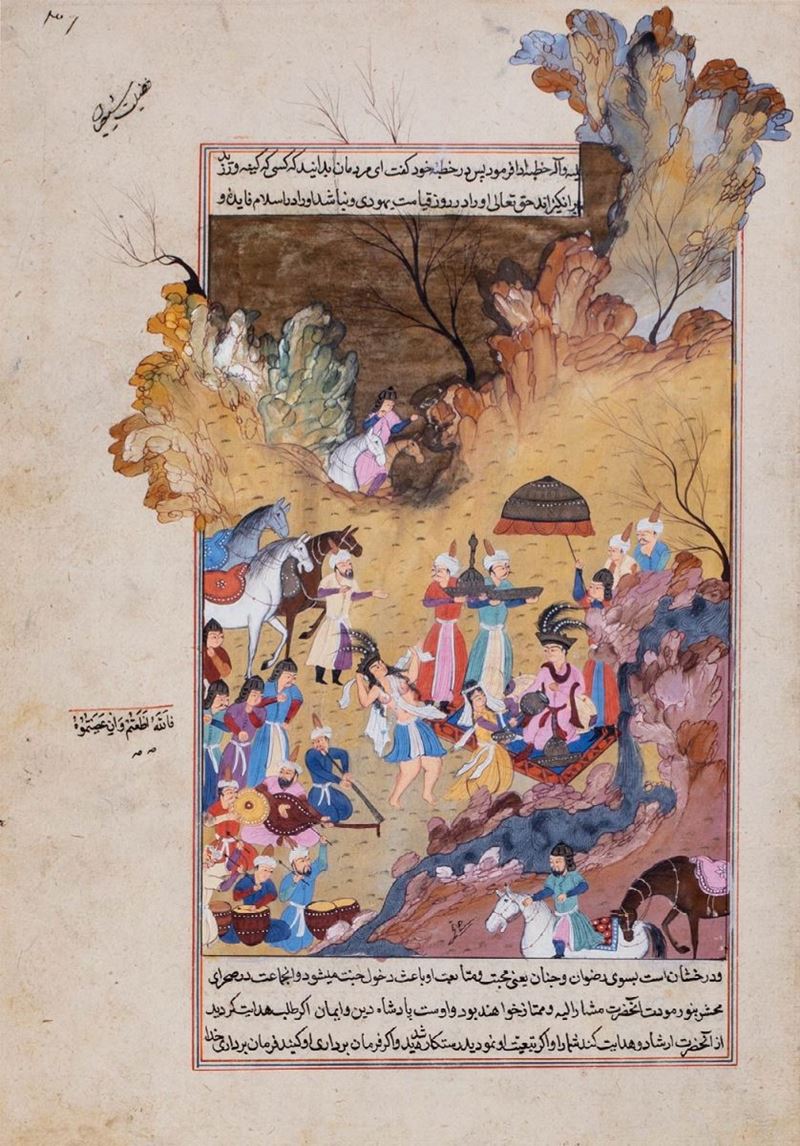 فضیلت شیعیان
علیه وآله خطبه ادا فرمود پس در خطبه خود گفت ای مردمان بدانید که کسی که کینه ورزد
برانگیزاند حق تعالی او را در روز قیامت یهودی و نباشد او را در اسلام فایده و
فانه لطعتم وان عصیتموه
ودرخشان است بسوی رضوان وجنان یعنی محبت ومتابعت او باعث دخول جنت میشود وانجماعت در صحرای
محشر بنور مودت آنحضرت مشارالیه وممتاز خواهند بود و اوست پادشاه دین وایمان اکر طلب هدایت کردید
از آنحضرت ارشاد و هدایت کند شما را واکر تبعیت او نمودید رستکار شدید واکر فرمان برداری او کنید فرمان برداری خدا